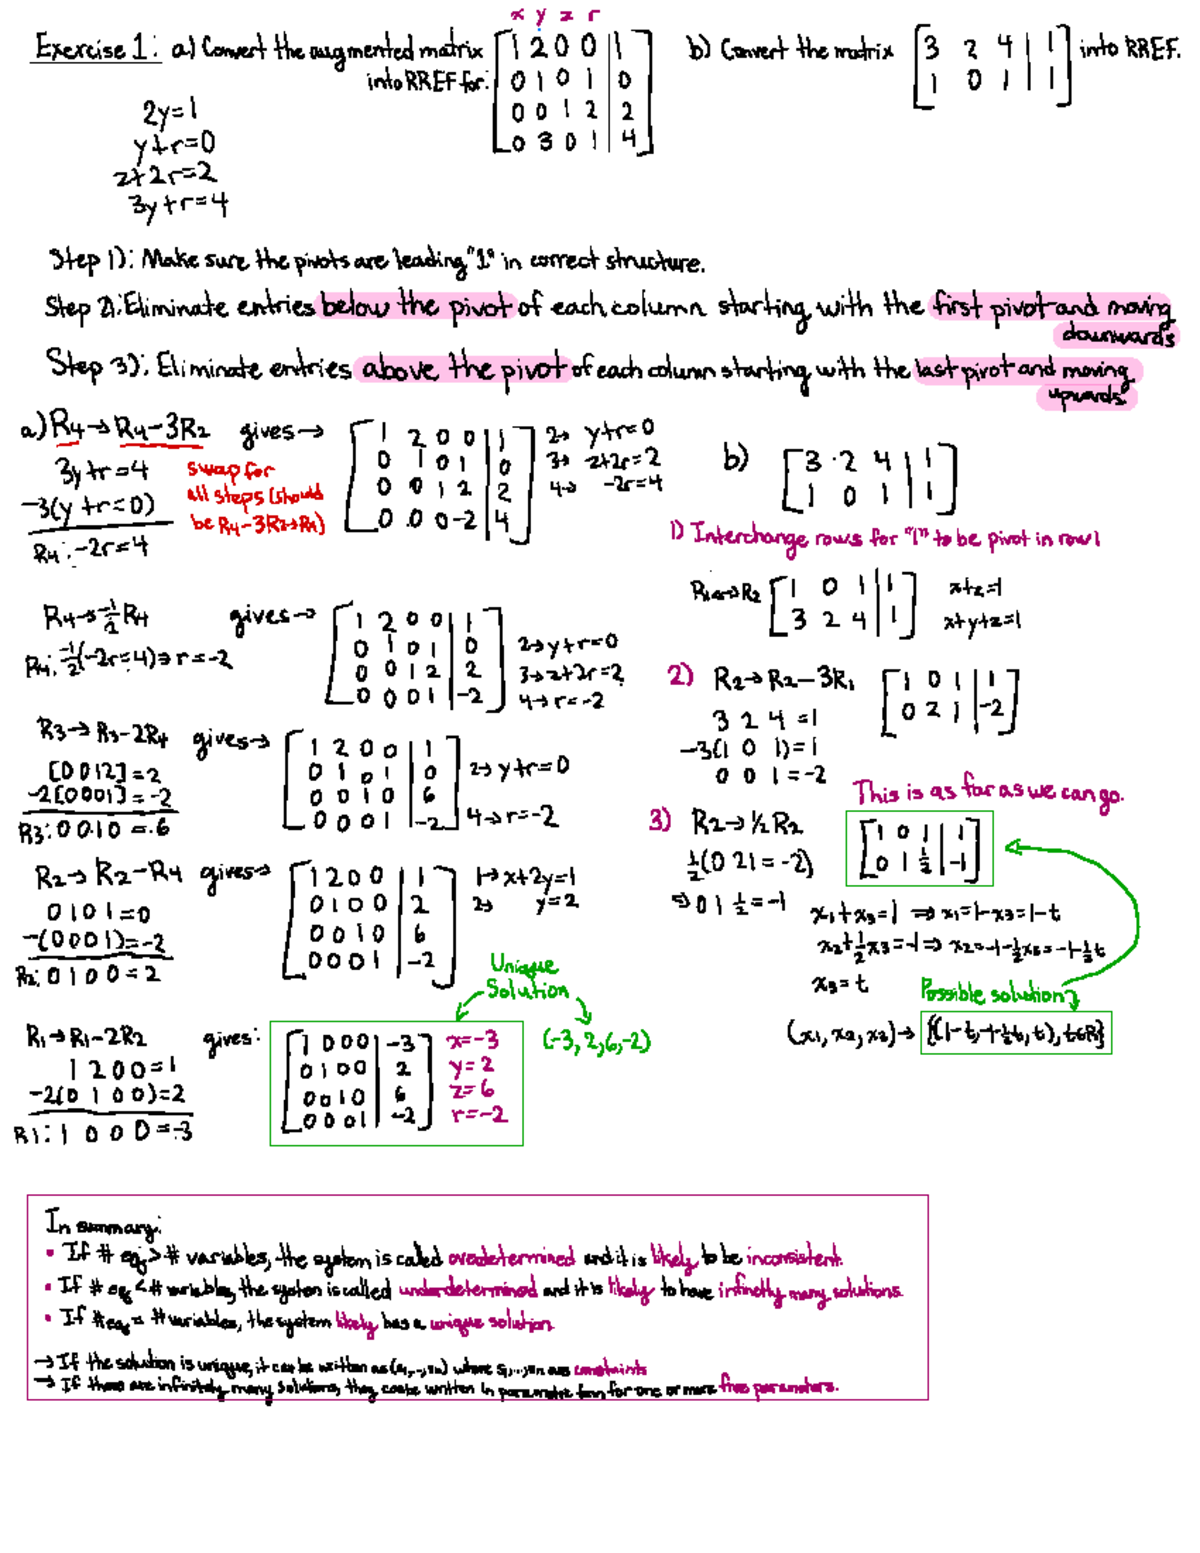 x y z r
Exercise 1: a) Convert the augmented matrix
into RREF for:
1 2 0 0 | 1
0 1 0 1 | 0
0 0 1 2 | 2
0 3 0 1 | 4
2y=1
y+r=0
z+2r=2
3y+r=4
b) Convert the matrix
3 2 4 | 1
1 0 1 | 1
into RREF.
Step 1): Make sure the pivots are leading "1" in correct structure.
Step 2): Eliminate entries below the pivot of each column starting with the first pivot and moving
downwards
Step 3): Eliminate entries above the pivot of each column starting with the last pivot and moving
upwards
a) R4→R4-3R2 gives→
3y+r=4
-3(y+r=0)
R4: -2r=4
swap for
all steps (should
be R4-3R2→R4)
1 2 0 0 | 1
0 1 0 1 | 0
0 0 1 2 | 2
0 0 0 -2 | 4
2→ y+r=0
3→ z+2r=2
4→ -2r=4
R4→-1/2R4 gives→
R4: -1/2(-2r=4)⇒r=-2
1 2 0 0 | 1
0 1 0 1 | 0
0 0 1 2 | 2
0 0 0 1 | -2
2→y+r=0
3→z+2r=2
4→r=-2
R3→R3-2R4 gives→
[0 0 1 2]=2
-2[0 0 0 1]=-2
R3: 0 0 1 0 = 6
1 2 0 0 | 1
0 1 0 1 | 0
0 0 1 0 | 6
0 0 0 1 | -2
2→y+r=0
4→r=-2
R2→R2-R4 gives→
0 1 0 1=0
-(0 0 0 1)=-2
R2: 0 1 0 0=2
1 2 0 0 | 1
0 1 0 0 | 2
0 0 1 0 | 6
0 0 0 1 | -2
1→x+2y=1
2→ y=2
R1→R1-2R2 gives:
1 2 0 0=1
-2(0 1 0 0)=2
R1: 1 0 0 0=-3
1 0 0 0 | -3
0 1 0 0 | 2
0 0 1 0 | 6
0 0 0 1 | -2
x=-3
y=2
z=6
r=-2
Unique
Solution
(-3, 2, 6, -2)
b)
3 2 4 | 1
1 0 1 | 1
1) Interchange rows for "1" to be pivot in row 1
R1↔R2
1 0 1 | 1
3 2 4 | 1
x+z=1
x+y+z=1
2) R2→R2-3R1
1 0 1 | 1
0 2 1 | -2
3 2 4 =1
-3(1 0 1)=1
0 0 1=-2
This is as far as we can go.
3) R2→1/2R2
1/2(0 2 1=-2)
⇒0 1 1/2=-1
1 0 1 | 1
0 1 1/2 | -1
x1+x3=1 ⇒ x1=1-x3=1-t
x2+1/2x3=-1⇒ x2=-1-1/2x3=-1-1/2t
x3=t
Possible solution
(x1, x2, x3)→ {(1-t, -1+1/2t, t), t∈R}
In summary:
• If # eq > # variables, the system is called overdetermined and it is likely to be inconsistent.
• If # eq < # variables, the system is called underdetermined and it is likely to have infinetly many solutions.
• If # eq = # variables, the system likely has a unique solution
→ If the solution is unique, it can be written as (s1,...,sn) where s1,...,sn are constraints
→ If there are infinitely many solutions, they can be written in parametric form for one or more free parameters.